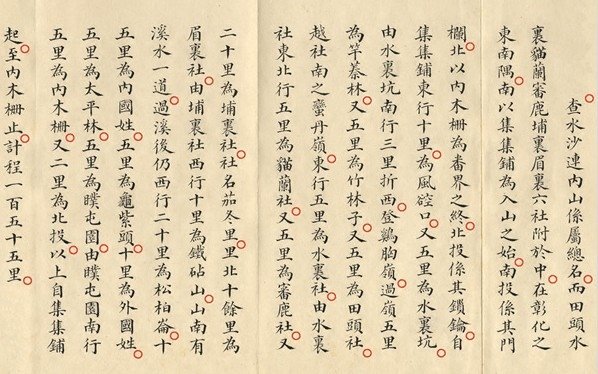 查水沙連內山係屬總名而田頭水
裏貓蘭審鹿埔裏眉裏六社附於中在彰化之
東南隅南以集集鋪為入山之始南投係其門
欄北以內木柵為番界之終北投係其鎖鑰自
集集鋪東行十里為風硿口又五里為水裏坑
由水裏坑南行三里折西登鷄胸嶺過嶺五里
為竿蓁林又五里為竹林子又五里為田頭社
越社南之蠻丹嶺東行五里為水裏社由水裏
社東北行五里為貓蘭社又五里為審鹿社又
二十里為埔裏社社名茄冬里里北十餘里為
眉裏社由埔裏社西行十里為鐵砧山山南有
溪水一道過溪後仍西行二十里為松柏崙十
五里為內國姓五里為龜紫頭十里為外國姓
五里為太平林五里為㬥屯園由㬥屯園南行
五里為內木柵又二里為北投以上自集集鋪
起至內木柵止計程一百五十五里